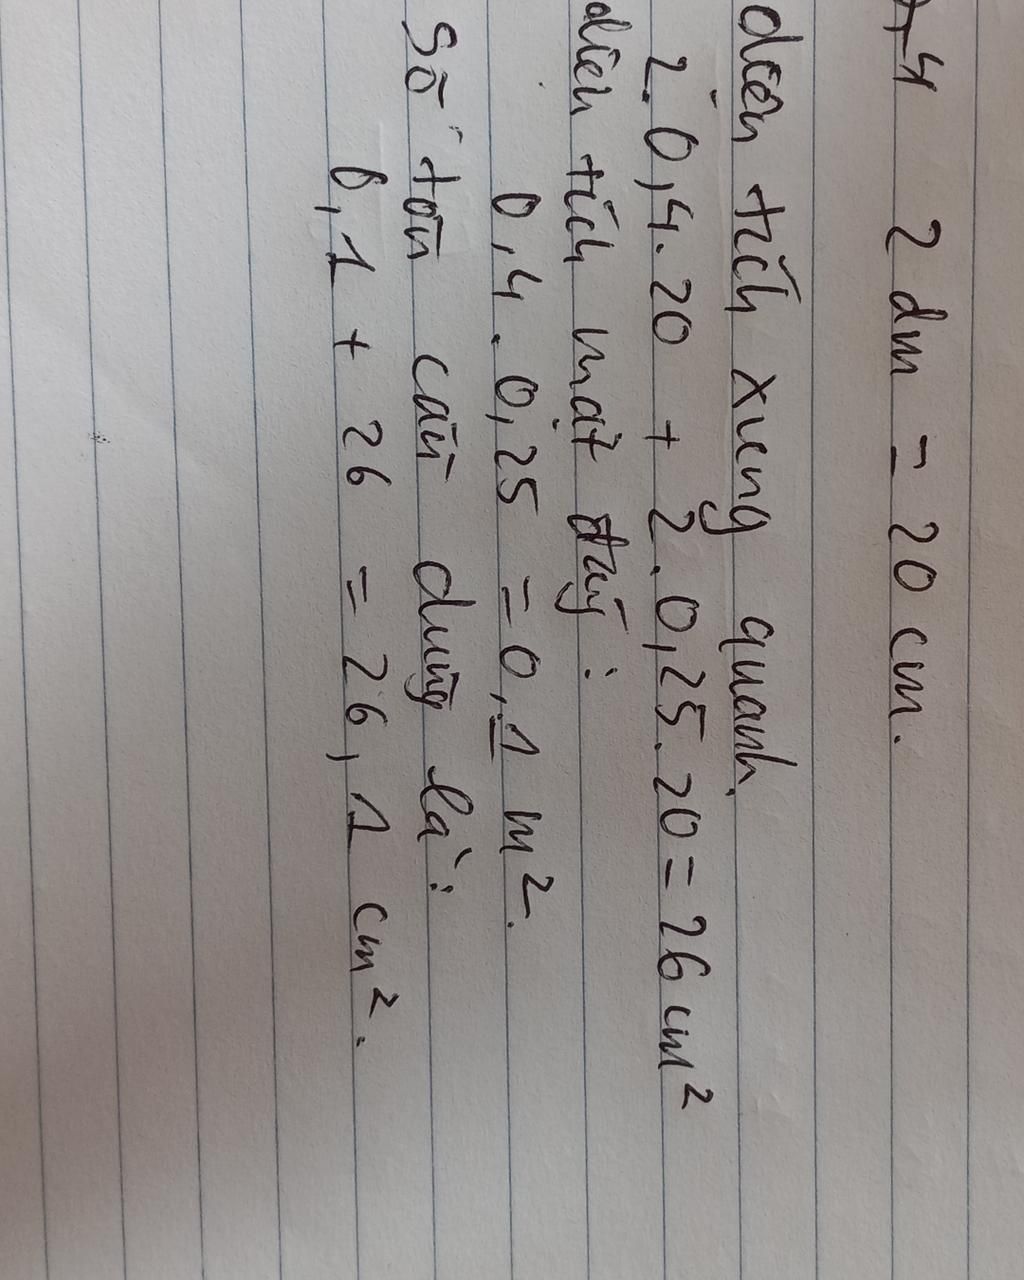 4 2 dm = 20 cm.
diện tích xung quanh
2.0,4.20 + 2.0,25.20 = 26 cm²
diện tích mặt đáy:
0,4.0,25 = 0,1 m².
Số tôn cần dùng là:
0,1 + 26 = 26,1 cm².